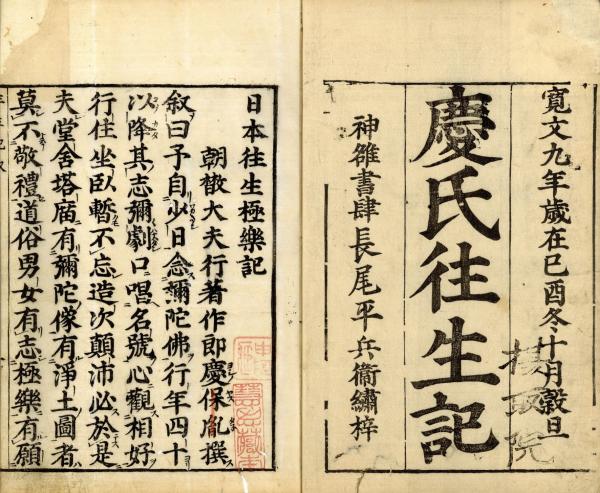 寛文九年歳在己酉冬十月穀旦
慶氏往生記
神雒書肆長尾平兵衞繡梓
日本往生極樂記
朝散大夫行著作郎慶保胤撰
叙曰予自少日念彌陀佛行年四十
以降其志彌劇口唱名號心觀相好
行住坐臥暫不忘造次顛沛必於是
夫堂舍塔廟有彌陀像有淨土圖者
莫不敬禮道俗男女有志極樂有願